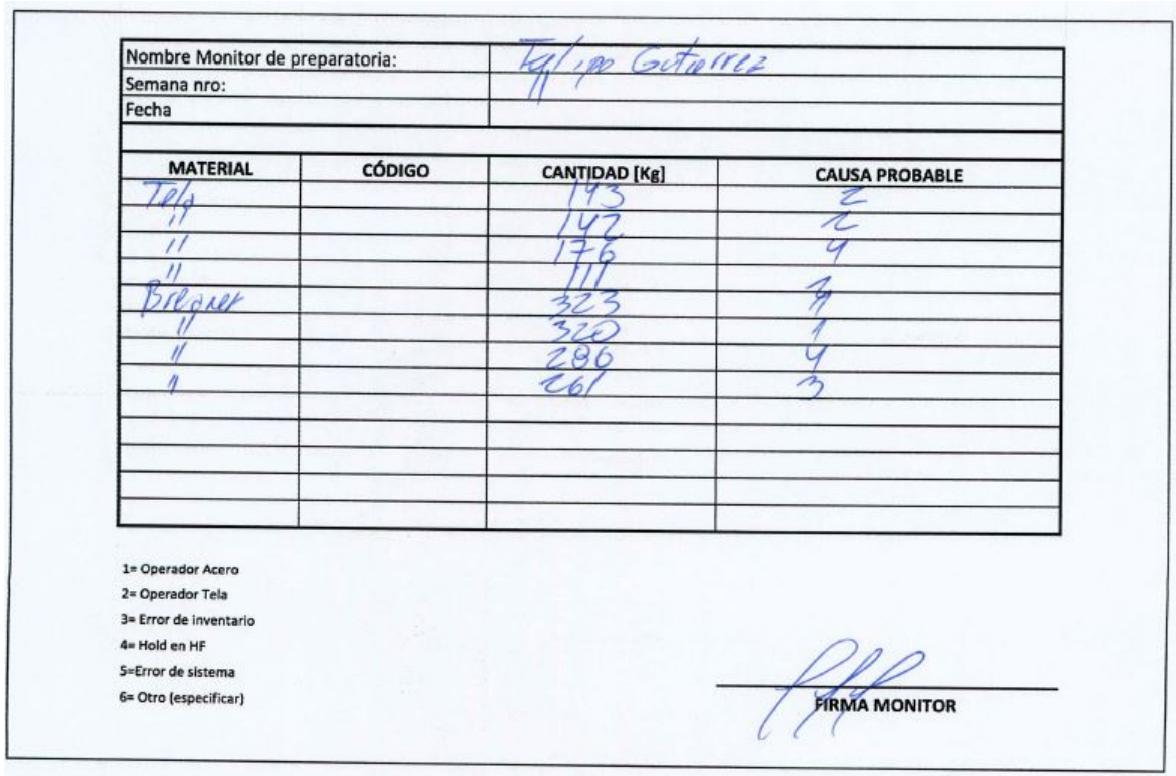 Nombre Monitor de preparatoria: Gutierrez
Semana nro: 11
Fecha
MATERIAL CÓDIGO CANTIDAD [Kg] CAUSA PROBABLE
Tela 143 2
" 142 2
" 176 4
" 111
323
" 320 1
" 286 4
" 261 3
1= Operador Acero
2= Operador Tela
3= Error de inventario
4= Hold en HF
5=Error de sistema
6= Otro (especificar)
FIRMA MONITOR